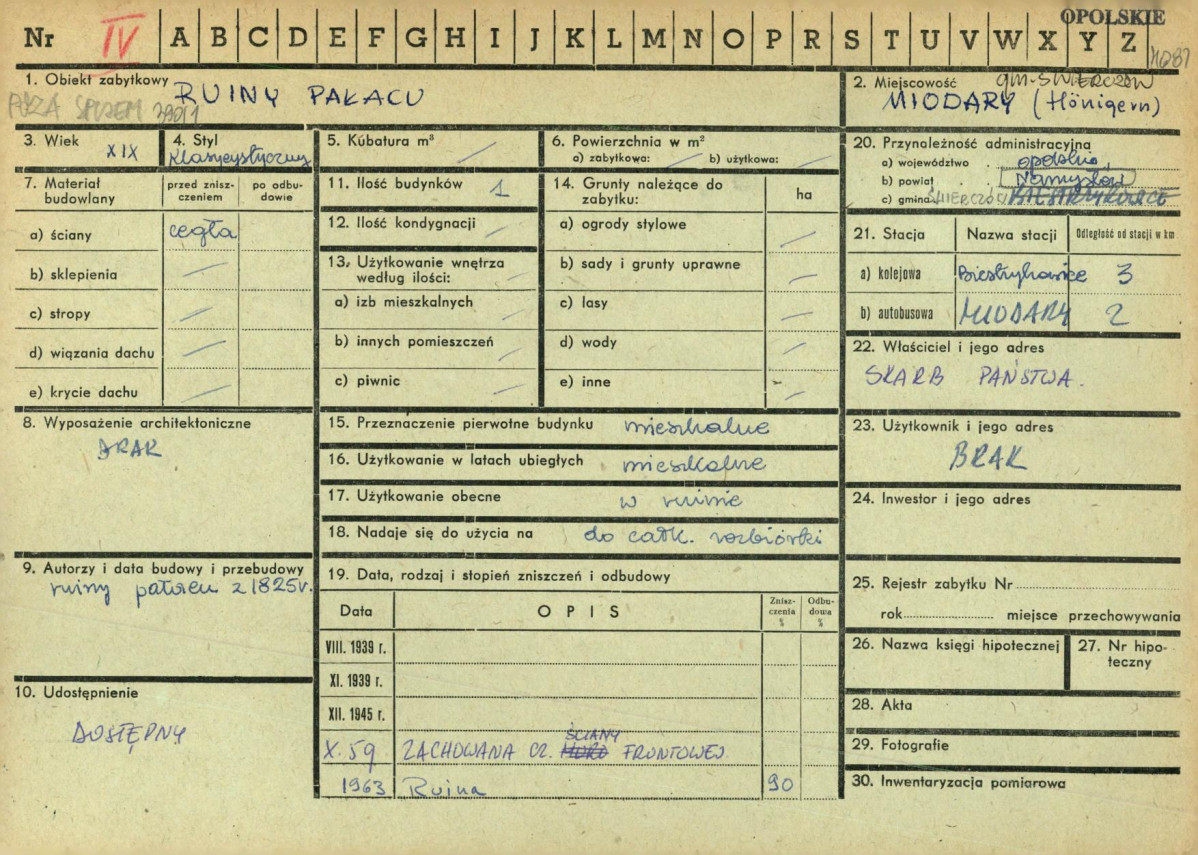 OPOLSKIE
Nr IV A B C D E F G H I J K L M N O P R S T U V W X Y Z
1. Obiekt zabytkowy RUINY PAŁACU
POZA SPISEM
2. Miejscowość gm. ŚWIERCZÓW
MIODARY (Hönigern)
3. Wiek XIX
4. Styl Klasycystyczny
5. Kúbatura m³ /
6. Powierzchnia w m²
a) zabytkowa: / b) użytkowa: /
7. Materiał budowlany
przed znisz-
czeniem
po odbu-
dowie
a) ściany cegła
b) sklepienia /
c) stropy /
d) wiązania dachu /
e) krycie dachu /
8. Wyposażenie architektoniczne
BRAK
9. Autorzy i data budowy i przebudowy
ruiny pałacu z 1825 r.
10. Udostępnienie
DOSTĘPNY
11. Ilość budynków 1
12. Ilość kondygnacji /
13. Użytkowanie wnętrza
według ilości:
a) izb mieszkalnych /
b) innych pomieszczeń /
c) piwnic /
14. Grunty należące do
zabytku:
ha
a) ogrody stylowe /
b) sady i grunty uprawne /
c) lasy /
d) wody /
e) inne /
15. Przeznaczenie pierwotne budynku mieszkalne
16. Użytkowanie w latach ubiegłych mieszkalne
17. Użytkowanie obecne w ruinie
18. Nadaje się do użycia na do całk. rozbiórki
19. Data, rodzaj i stopień zniszczeń i odbudowy
Data OPIS Znisz-
czenia
%
Odbu-
dowa
%
VIII. 1939 r.
XI. 1939 r.
XII. 1945 r.
X. 59 ZACHOWANA CZ. ŚCIANY FRONTOWEJ
1963 Ruina 90
20. Przynależność administracyjną
a) województwo opolskie
b) powiat Namysłów
c) gmina ŚWIERCZÓW
21. Stacja Nazwa stacji Odległość od stacji w km
a) kolejowa Biestrzykowice 3
b) autobusowa MIODARY 2
22. Właściciel i jego adres
SKARB PAŃSTWA.
23. Użytkownik i jego adres
BRAK
24. Inwestor i jego adres
25. Rejestr zabytku Nr
rok miejsce przechowywania
26. Nazwa księgi hipotecznej
27. Nr hipo-
teczny
28. Akta
29. Fotografie
30. Inwentaryzacja pomiarowa